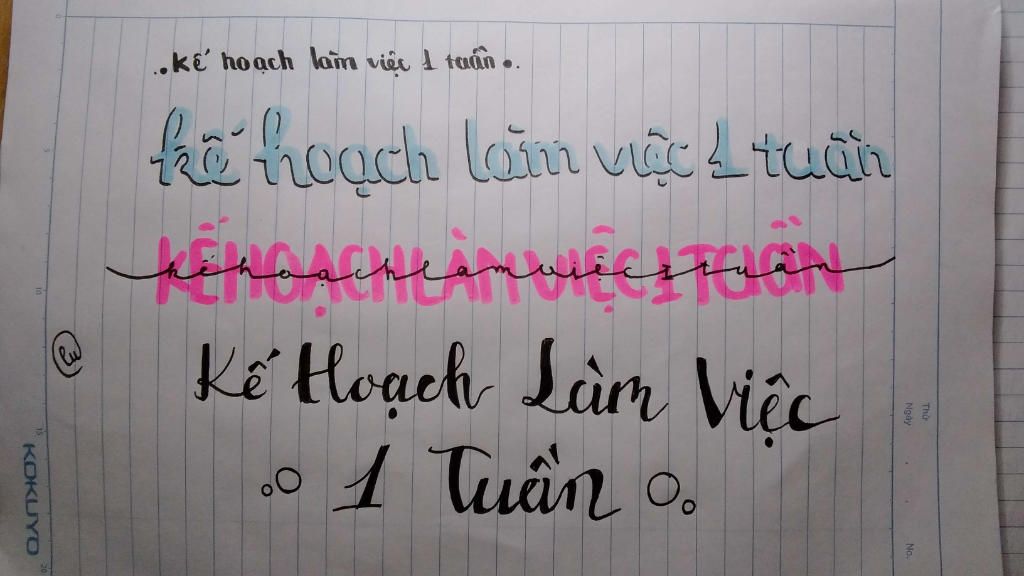 ..Kế hoạch làm việc 1 tuần..
kế hoạch làm việc 1 tuần
KẾ HOẠCH LÀM VIỆC 1 TUẦN
kế hoạch làm việc 1 tuần
Kế Hoạch Làm Việc
1 Tuần
KOKUYO
Thứ
Ngày
No.
5
10
15
20